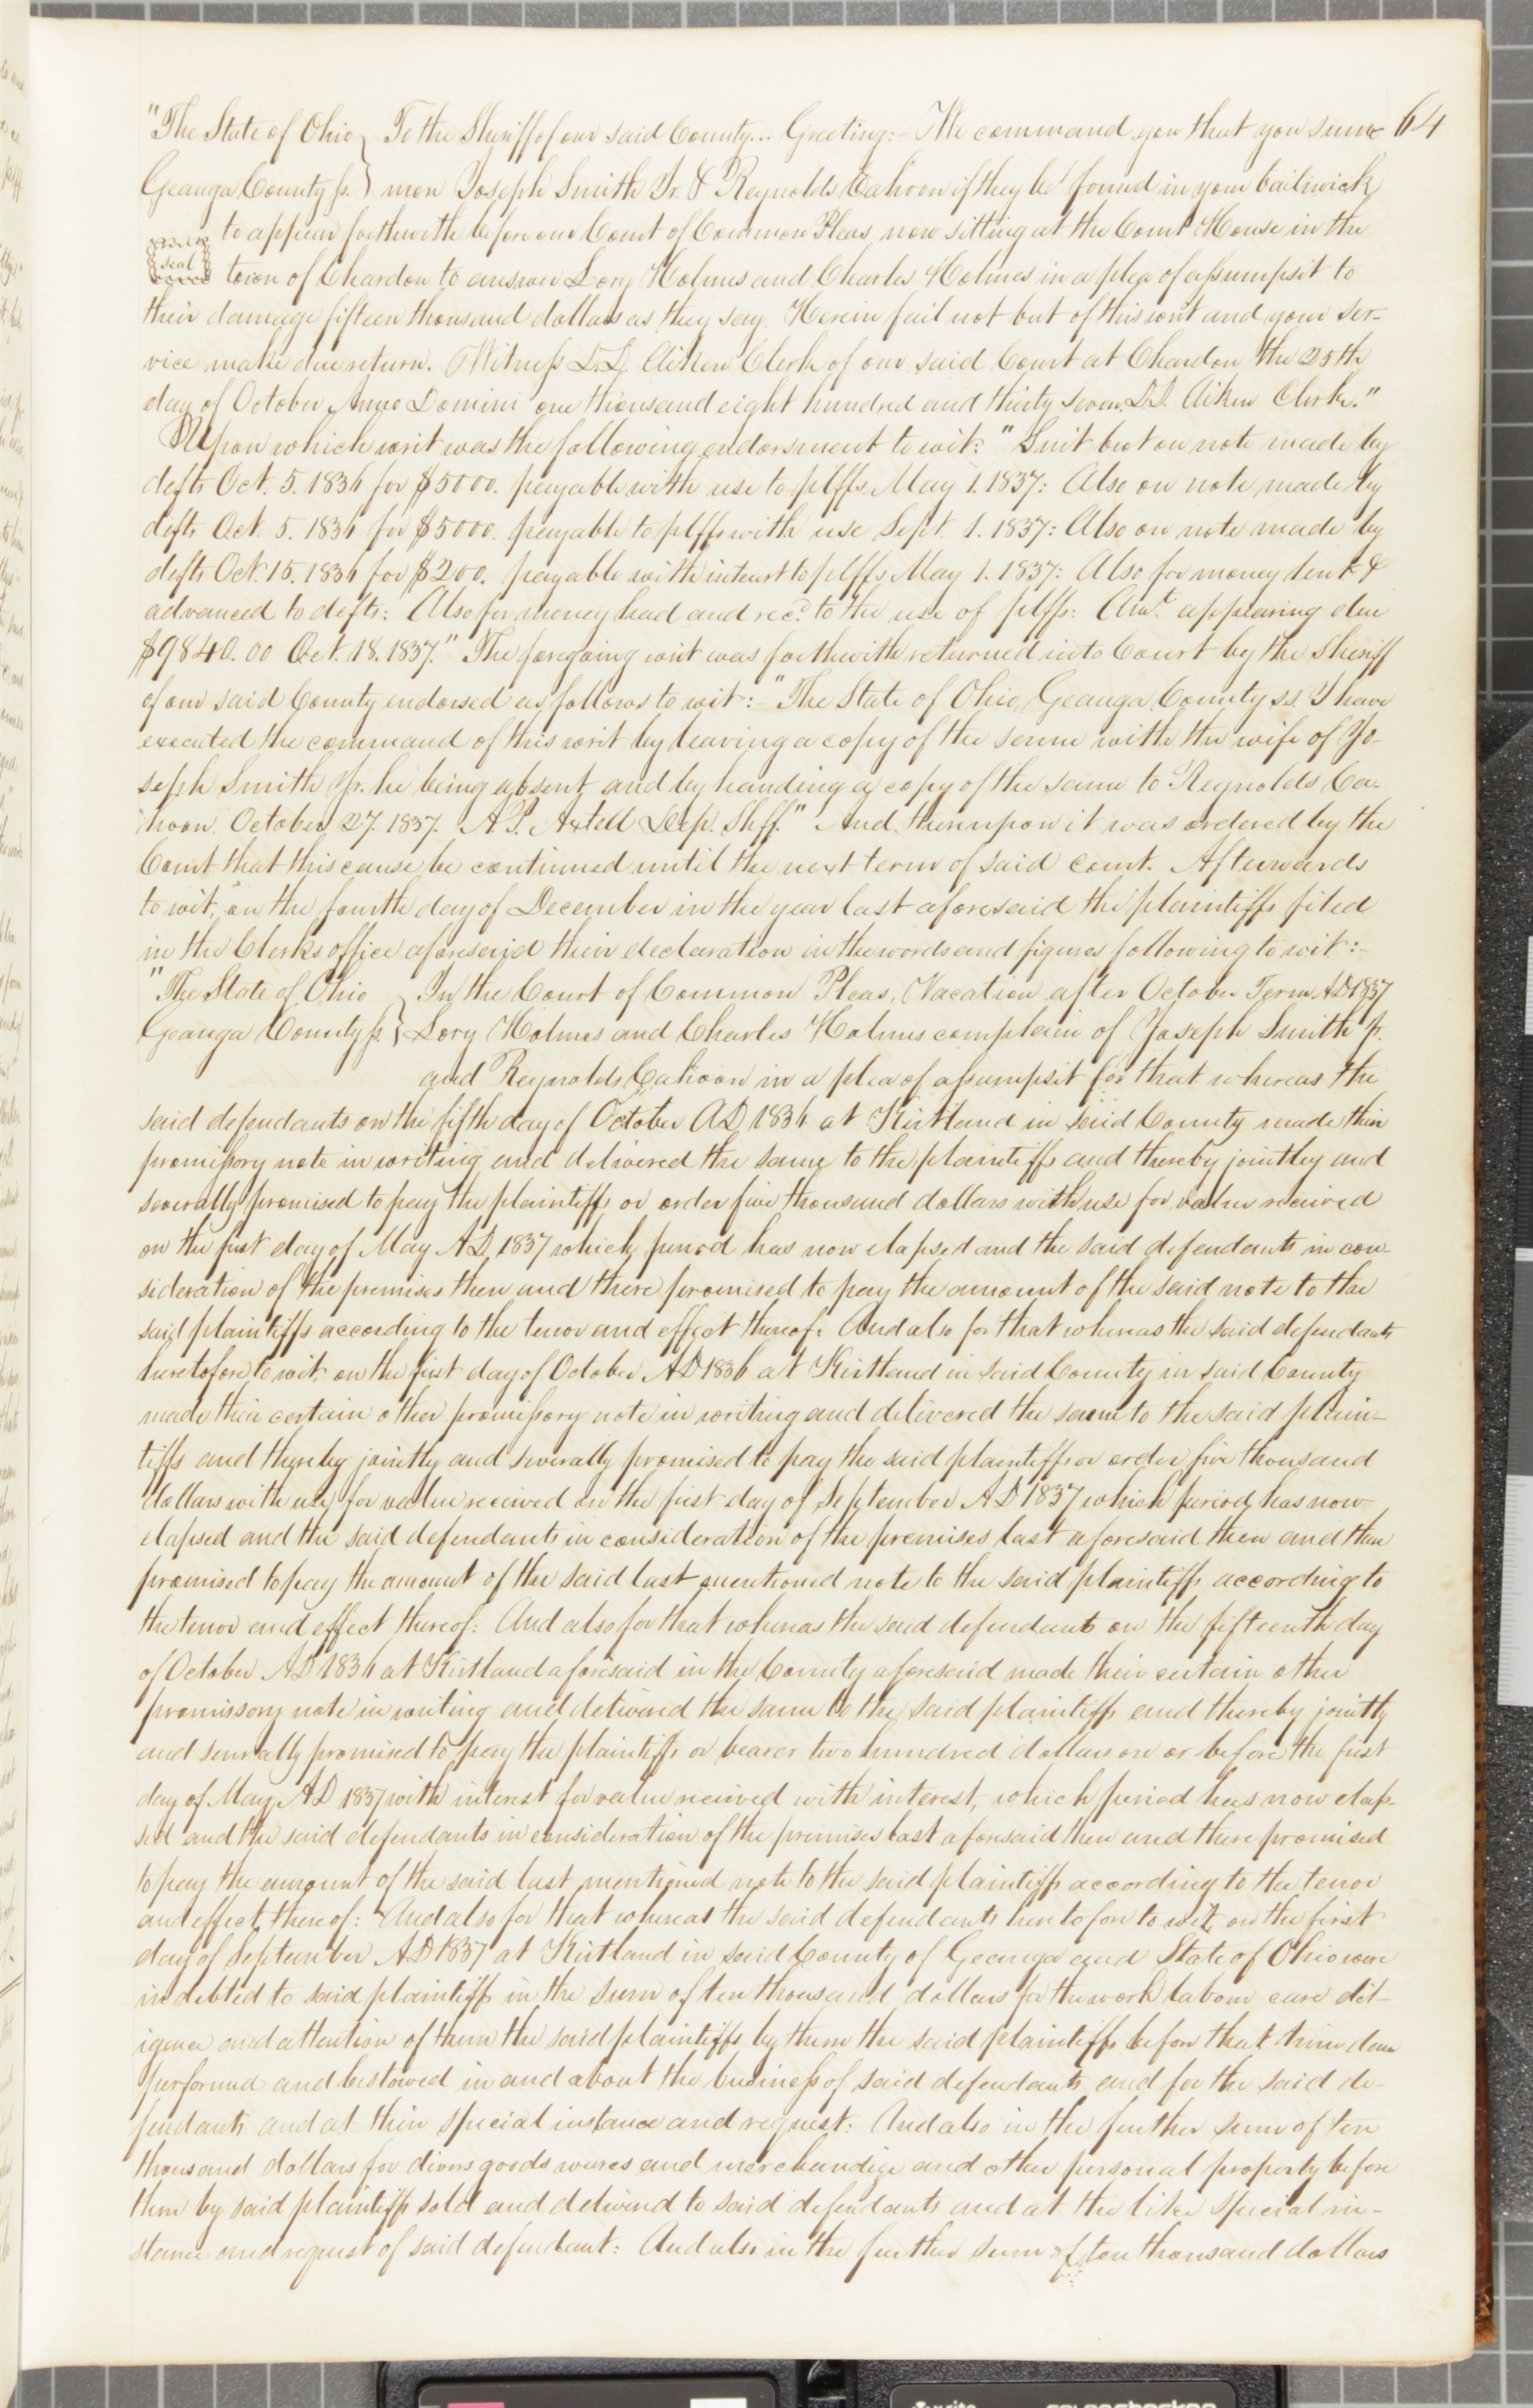 "The State of Ohio } To the Sheriff of our said County... Greeting:– We command you that you sum- 64
Geauga County ss. } mon Joseph Smith Jr. & Reynolds Cahoon if they be found in your bailiwick
to appear forthwith before our Court of Common Pleas now sitting at the Court House in the
seal town of Chardon to answer Lory Holmes and Charles Holmes in a plea of assumpsit to
their damage fifteen thousand dollars as they say. Herein fail not but of this writ and your ser-
vice make due return. Witness D.D. Aiken Clerk of our said Court at Chardon the 25th
day of October Anno Domini one thousand eight hundred and thirty seven. D.D. Aiken Clerk."
Upon which writ was the following endorsment to wit: "Suit brot on note made by
defts Oct. 5. 1836 for $5000. payable with use to plffs. May 1. 1837: Also on note made by
defts Oct. 5. 1836 for $5000. payable to plffs with use Sept. 1. 1837: Also on note made by
defts Oct. 15. 1836 for $200. payable with interest to plffs May 1. 1837: Also for money lent &
advanced to defts: Also for money had and recd. to the use of plffs: Amt. appearing due
$9840.00 Oct. 18. 1837." The foregoing writ was forthwith returned into Court by the Sheriff
of our said County endorsed as follows to wit:– "The State of Ohio, Geauga County ss. I have
executed the command of this writ by leaving a copy of the same with the wife of Jo-
seph Smith Jr. he being absent, and by handing a copy of the same to Reynolds Ca-
hoon. October 27. 1837. A.P. Axtell Dep. Shff." And thereupon it was ordered by the
Court that this cause be continued until the next term of said court. Afterwards
to wit, on the fourth day of December in the year last aforesaid the plaintiffs filed
in the Clerks office aforesaid their declaration in the words and figures following to wit:–
"The State of Ohio } In the Court of Common Pleas, Vacation after October Term, AD 1837
Geauga County ss. } Lory Holmes and Charles Holmes complain of Joseph Smith Jr.
and Reynolds Cahoon in a plea of assumpsit for that whereas the
said defendants on the fifth day of October AD 1836 at Kirtland in said County made their
promissory note in writing and delivered the same to the plaintiffs and thereby jointley and
severally promised to pay the plaintiffs or order five thousand dollars with use for value received
on the first day of May AD. 1837 which period has now elapsed and the said defendants in con-
sideration of the premises then and there promised to pay the amount of the said note to the
said plaintiffs according to the tenor and effect thereof. And also for that whereas the said defendants
heretofore to wit, on the first day of October AD 1836 at Kirtland in said County in said County
made their certain other promissory note in writing and delivered the same to the said plain-
tiffs and thereby jointly and severally promised to pay the said plaintiffs or order five thousand
dollars with use for value received on the first day of September AD 1837 which period has now
elapsed and the said defendants in consideration of the premises last aforesaid then and there
promised to pay the amount of the said last mentioned note to the said plaintiffs according to
the tenor and effect thereof: And also for that whereas the said defendants on the fifteenth day
of October AD 1836 at Kirtland aforesaid in the County aforesaid made their certain other
promissory note in writing and delivered the same to the said plaintiffs and thereby jointly
and severally promised to pay the plaintiffs or bearer two hundred dollars on or before the first
day of May AD 1837 with interest for value received with interest, which period has now elap-
sed and the said defendants in consideration of the premises last aforesaid then and there promised
to pay the amount of the said last mentioned note to the said plaintiffs according to the tenor
and effect thereof: And also for that whereas the said defendants heretofore to wit, on the first
day of September AD 1837 at Kirtland in said County of Geauga and State of Ohio were
indebted to said plaintiffs in the sum of ten thousand dollars for the work labour care dil-
igence and attention of them the said plaintiffs by them the said plaintiffs before that time done
performed and bestowed in and about the business of said defendants and for the said de-
fendants and at their special instance and request: And also in the further sum of ten
thousand dollars for divers goods wares and merchandize and other personal property before
then by said plaintiffs sold and delivered to said defendants and at the like special in-
stance and request of said defendant: And also in the further sum of ten thousand dollars